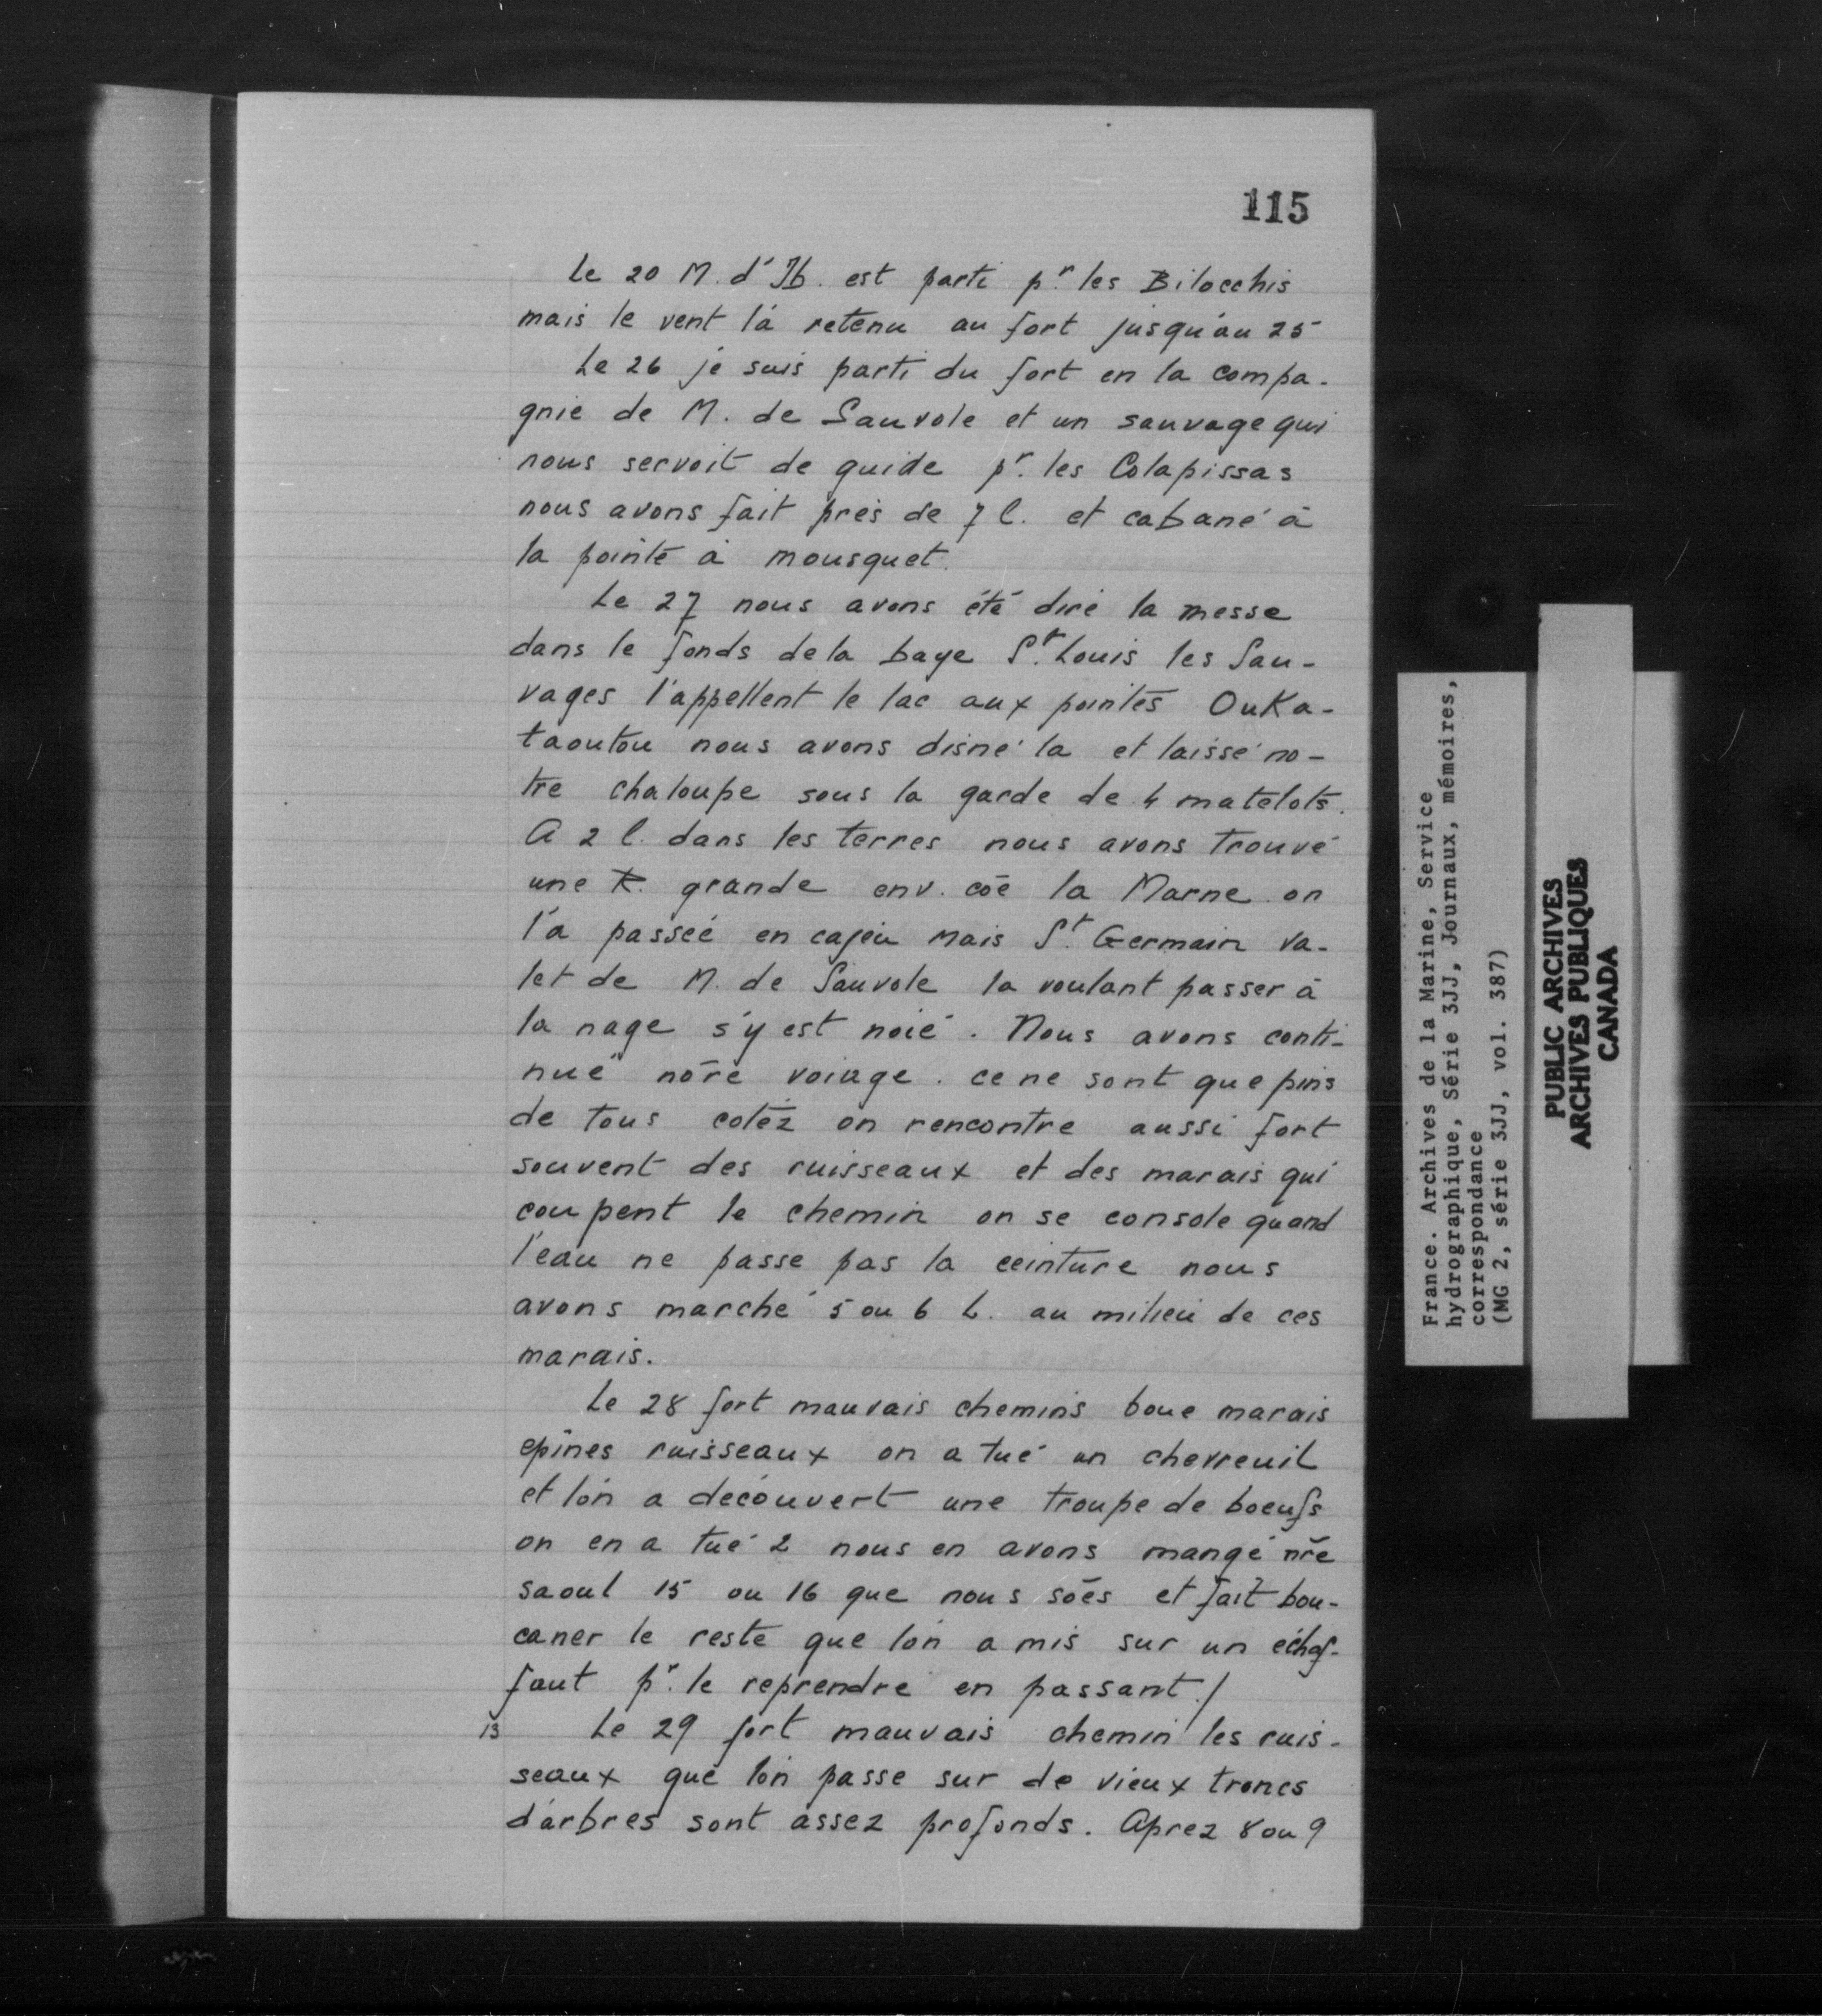 115
Le 20 M. d'Ib. est parti pr. les Bilocchis
mais le vent l'a retenu au fort jusqu'au 25
Le 26 je suis parti du fort en la compa-
gnie de M. de Sauvole et un sauvage qui
nous servoit de guide pr. les Colapissas
nous avons fait près de 7 l. et cabané à
la pointe à mousquet.
Le 27 nous avons été dire la messe
dans le fonds de la baye St. Louis les Sau-
vages l'appellent le lac aux pointes OuKa-
taoutou nous avons disné la et laissé no-
tre chaloupe sous la garde de 4 matelots.
A 2 l. dans les terres nous avons trouvé
une R. grande env. cōe la Marne on
l'a passée en cajeu mais St. Germain va-
let de M. de Sauvole la voulant passer à
la nage s'y est noié. Nous avons conti-
nuë nōre voiage. ce ne sont que pins
de tous cotéz on rencontre aussi fort
souvent des ruisseaux et des marais qui
coupent le chemin on se console quand
l'eau ne passe pas la ceinture nous
avons marché 5 ou 6 L. au milieu de ces
marais.
Le 28 fort mauvais chemins boue marais
epines ruisseaux on a tué un chevreuil
et l'on a decouvert une troupe de boeufs
on en a tué 2 nous en avons mangé nr̃e
saoul 15 ou 16 que nous sōes et fait bou-
caner le reste que l'on a mis sur un échaf-
faut pr. le reprendre en passant./
13 Le 29 fort mauvais chemin les ruis-
seaux que l'on passe sur de vieux troncs
d'arbres sont assez profonds. Aprez 8 ou 9
France. Archives de la Marine, Service
hydrographique, Série 3JJ, Journaux, mémoires,
correspondance
(MG 2, série 3JJ, vol. 387)
PUBLIC ARCHIVES
ARCHIVES PUBLIQUES
CANADA